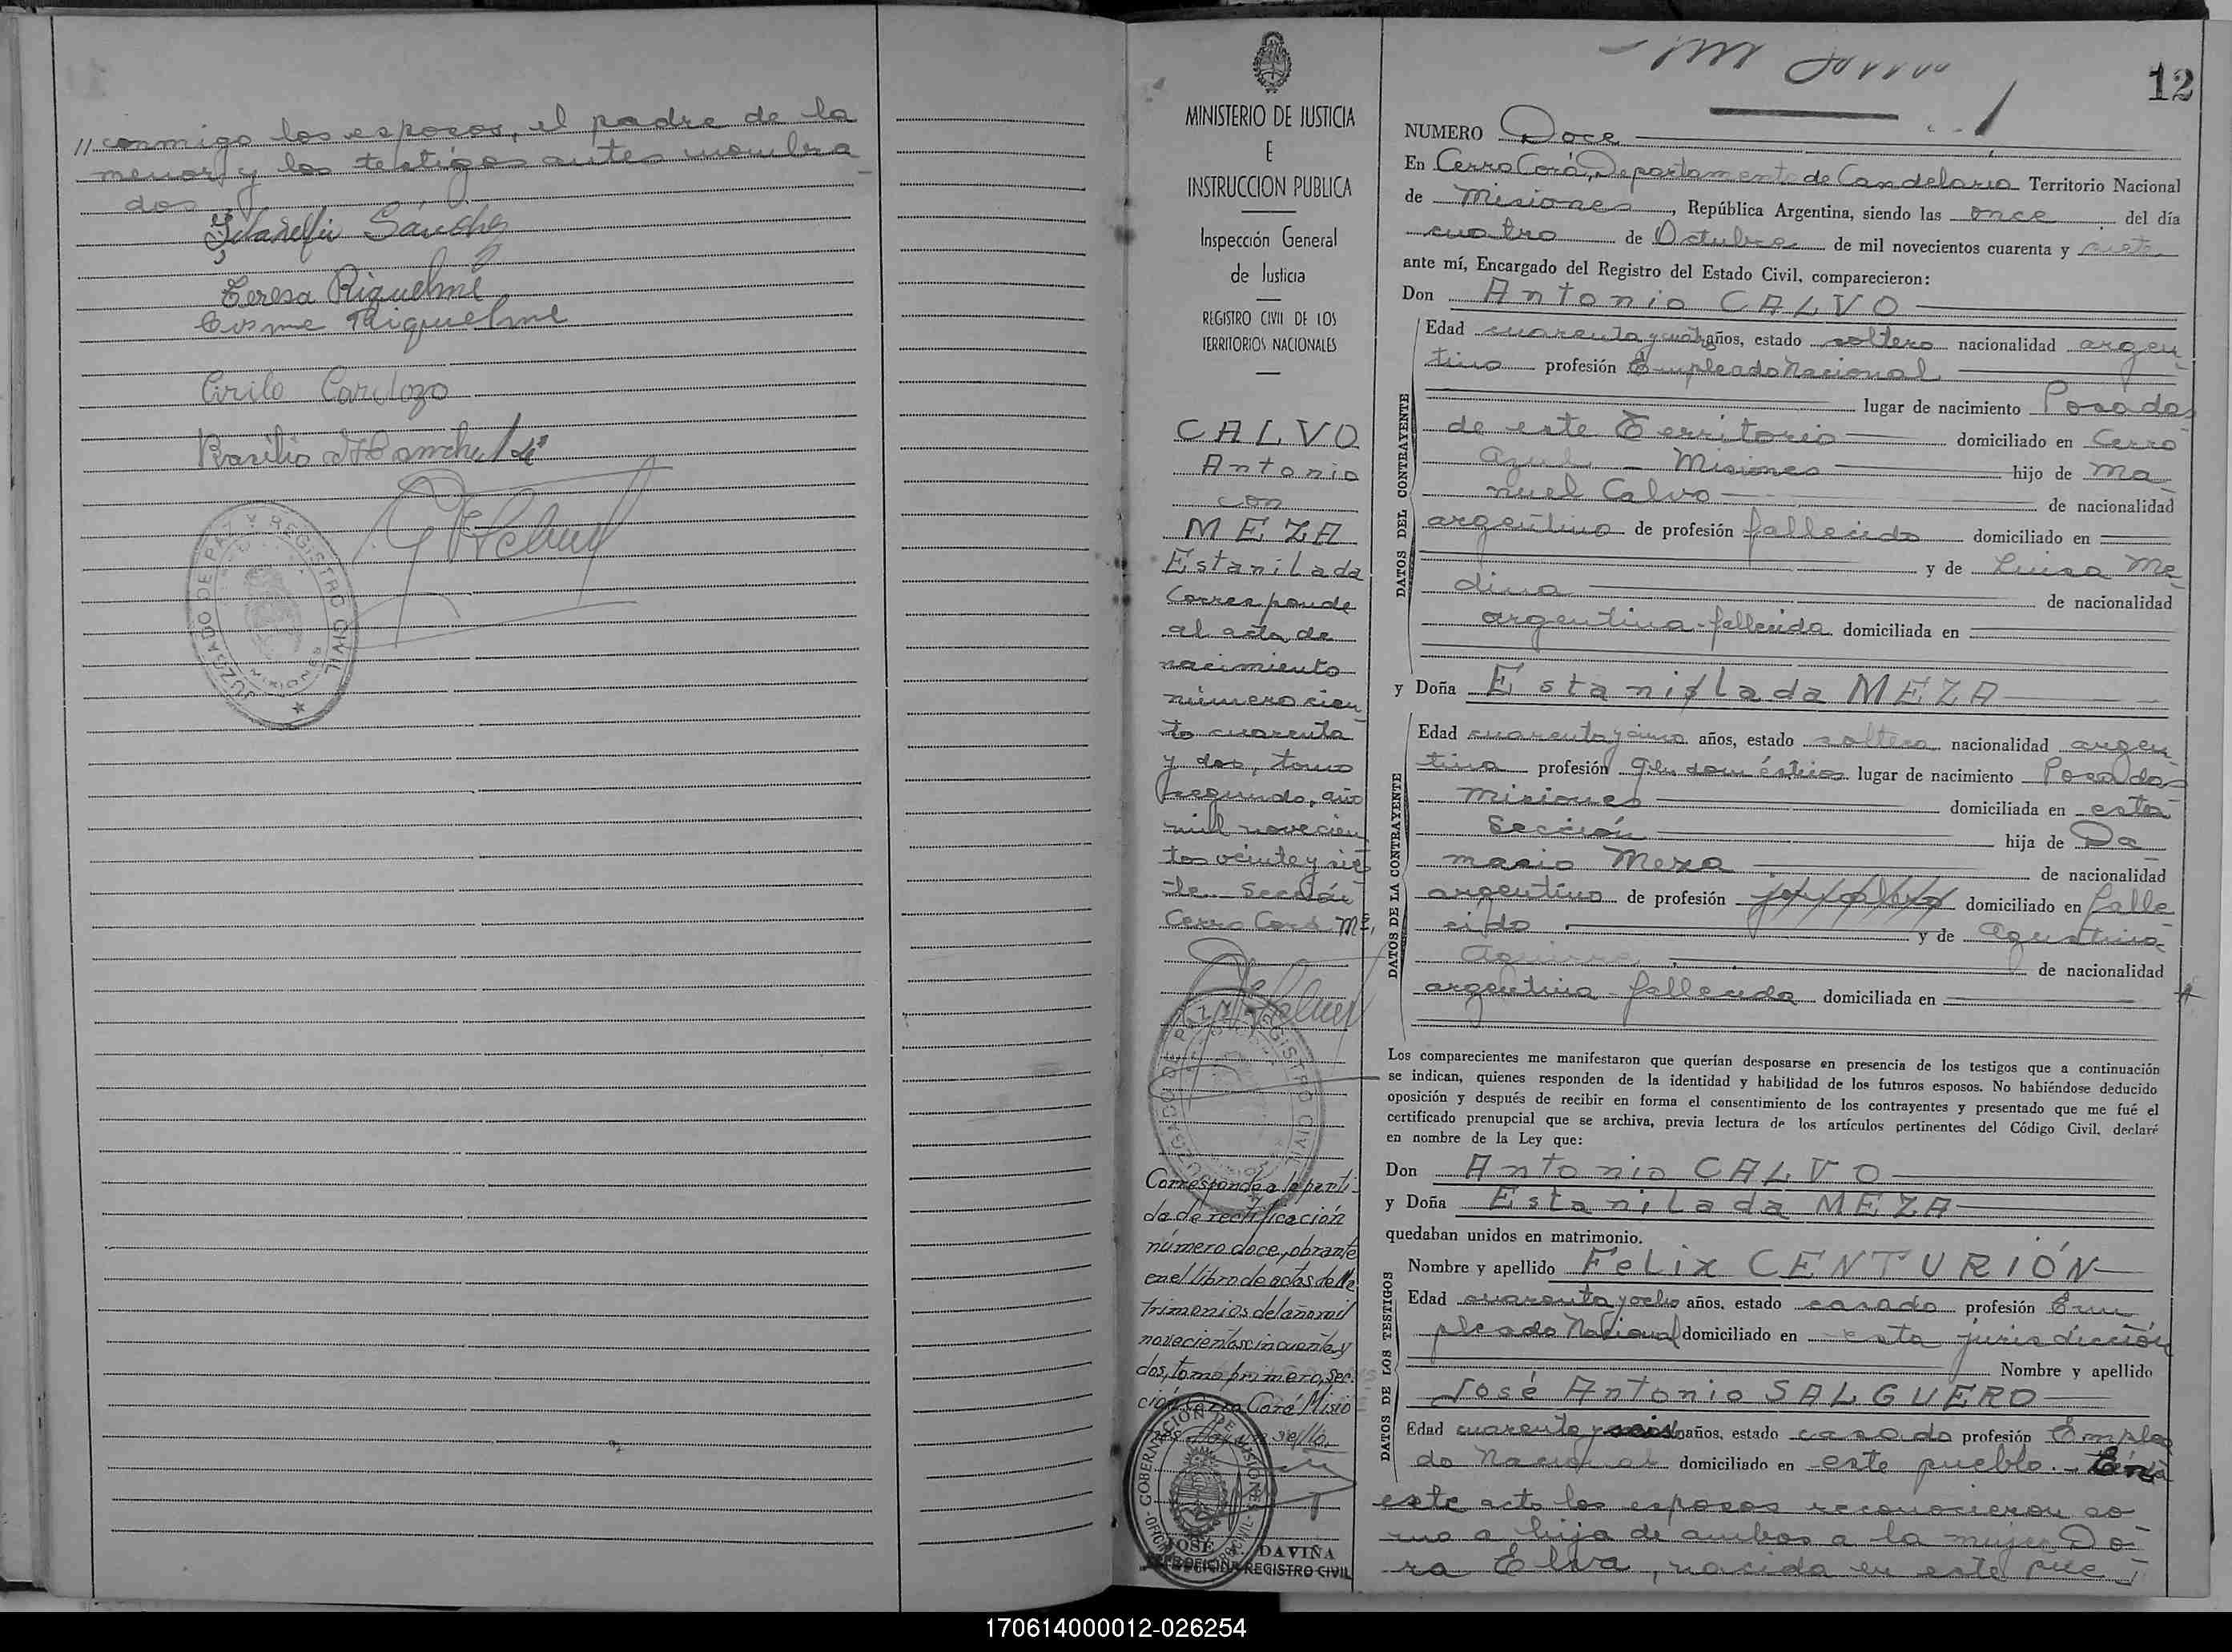 // conmigo los esposos, el padre de la
menor y los testigos antes nombra-
dos
Sánchez
Teresa Riquelme
Cosme Riquelme
Cirilo Cardozo
Basilio
JUZGADO DE PAZ Y REGISTRO CIVIL
MISIONES
MINISTERIO DE JUSTICIA
E
INSTRUCCION PUBLICA
Inspección General
de Justicia
REGISTRO CIVIL DE LOS
TERRITORIOS NACIONALES
CALVO
Antonio
con
MEZA
Estanilada
Corresponde
al acta de
nacimiento
número cien-
to cuarenta
y dos, tomo
segundo, año
mil novecien-
tos veinte y sie-
te. Sección
Cerro Corá Ms.
JUZGADO DE PAZ Y REGISTRO CIVIL
Corresponde a la parti-
da de rectificación
número doce, obrante
en el libro de actas de Ma-
trimonios del año mil
novecientos cincuenta y
dos, tomo primero, sec-
ción Cerro Corá Misio-
nes. Hay un sello.
GOBERNACIÓN DE MISIONES
JOSÉ DAVIÑA
JEFE OFICINA REGISTRO CIVIL
12
NUMERO Doce
En Cerro Corá, Departamento de Candelaria Territorio Nacional
de Misiones, República Argentina, siendo las once del día
cuatro de Octubre de mil novecientos cuarenta y siete
ante mí, Encargado del Registro del Estado Civil, comparecieron:
Don Antonio CALVO
DATOS DEL CONTRAYENTE
Edad cuarenta y cuatro años, estado soltero nacionalidad argen-
tino profesión Empleado Nacional
lugar de nacimiento Posadas
de este Territorio domiciliado en Cerro
Azul - Misiones hijo de Ma-
nuel Calvo de nacionalidad
argentino de profesión fallecido domiciliado en
y de Luisa Me-
dina de nacionalidad
argentina-fallecida domiciliada en
y Doña Estanislada MEZA
DATOS DE LA CONTRAYENTE
Edad cuarenta y cinco años, estado soltera nacionalidad argen-
tina profesión Q. domésticos lugar de nacimiento Posadas
Misiones domiciliada en esta
Sección hija de Da-
masio Meza de nacionalidad
argentino de profesión domiciliado en falle-
cido y de Agustina
Aguirre de nacionalidad
argentina - fallecida domiciliada en
Los comparecientes me manifestaron que querían desposarse en presencia de los testigos que a continuación
se indican, quienes responden de la identidad y habilidad de los futuros esposos. No habiéndose deducido
oposición y después de recibir en forma el consentimiento de los contrayentes y presentado que me fué el
certificado prenupcial que se archiva, previa lectura de los artículos pertinentes del Código Civil, declaré
en nombre de la Ley que:
Don Antonio CALVO
y Doña Estanilada MEZA
quedaban unidos en matrimonio.
DATOS DE LOS TESTIGOS
Nombre y apellido Felix CENTURIÓN
Edad cuarenta y ocho años, estado casado profesión Em-
pleado Nacional domiciliado en esta jurisdicción
Nombre y apellido
José Antonio SALGUERO
Edad cuarenta y seis años, estado casado profesión Emplea-
do Nacional domiciliado en este pueblo. En
este acto los esposos reconocieron co-
mo a hija de ambos a la mujer Do-
ra Elva, nacida en este pue-
170614000012-026254